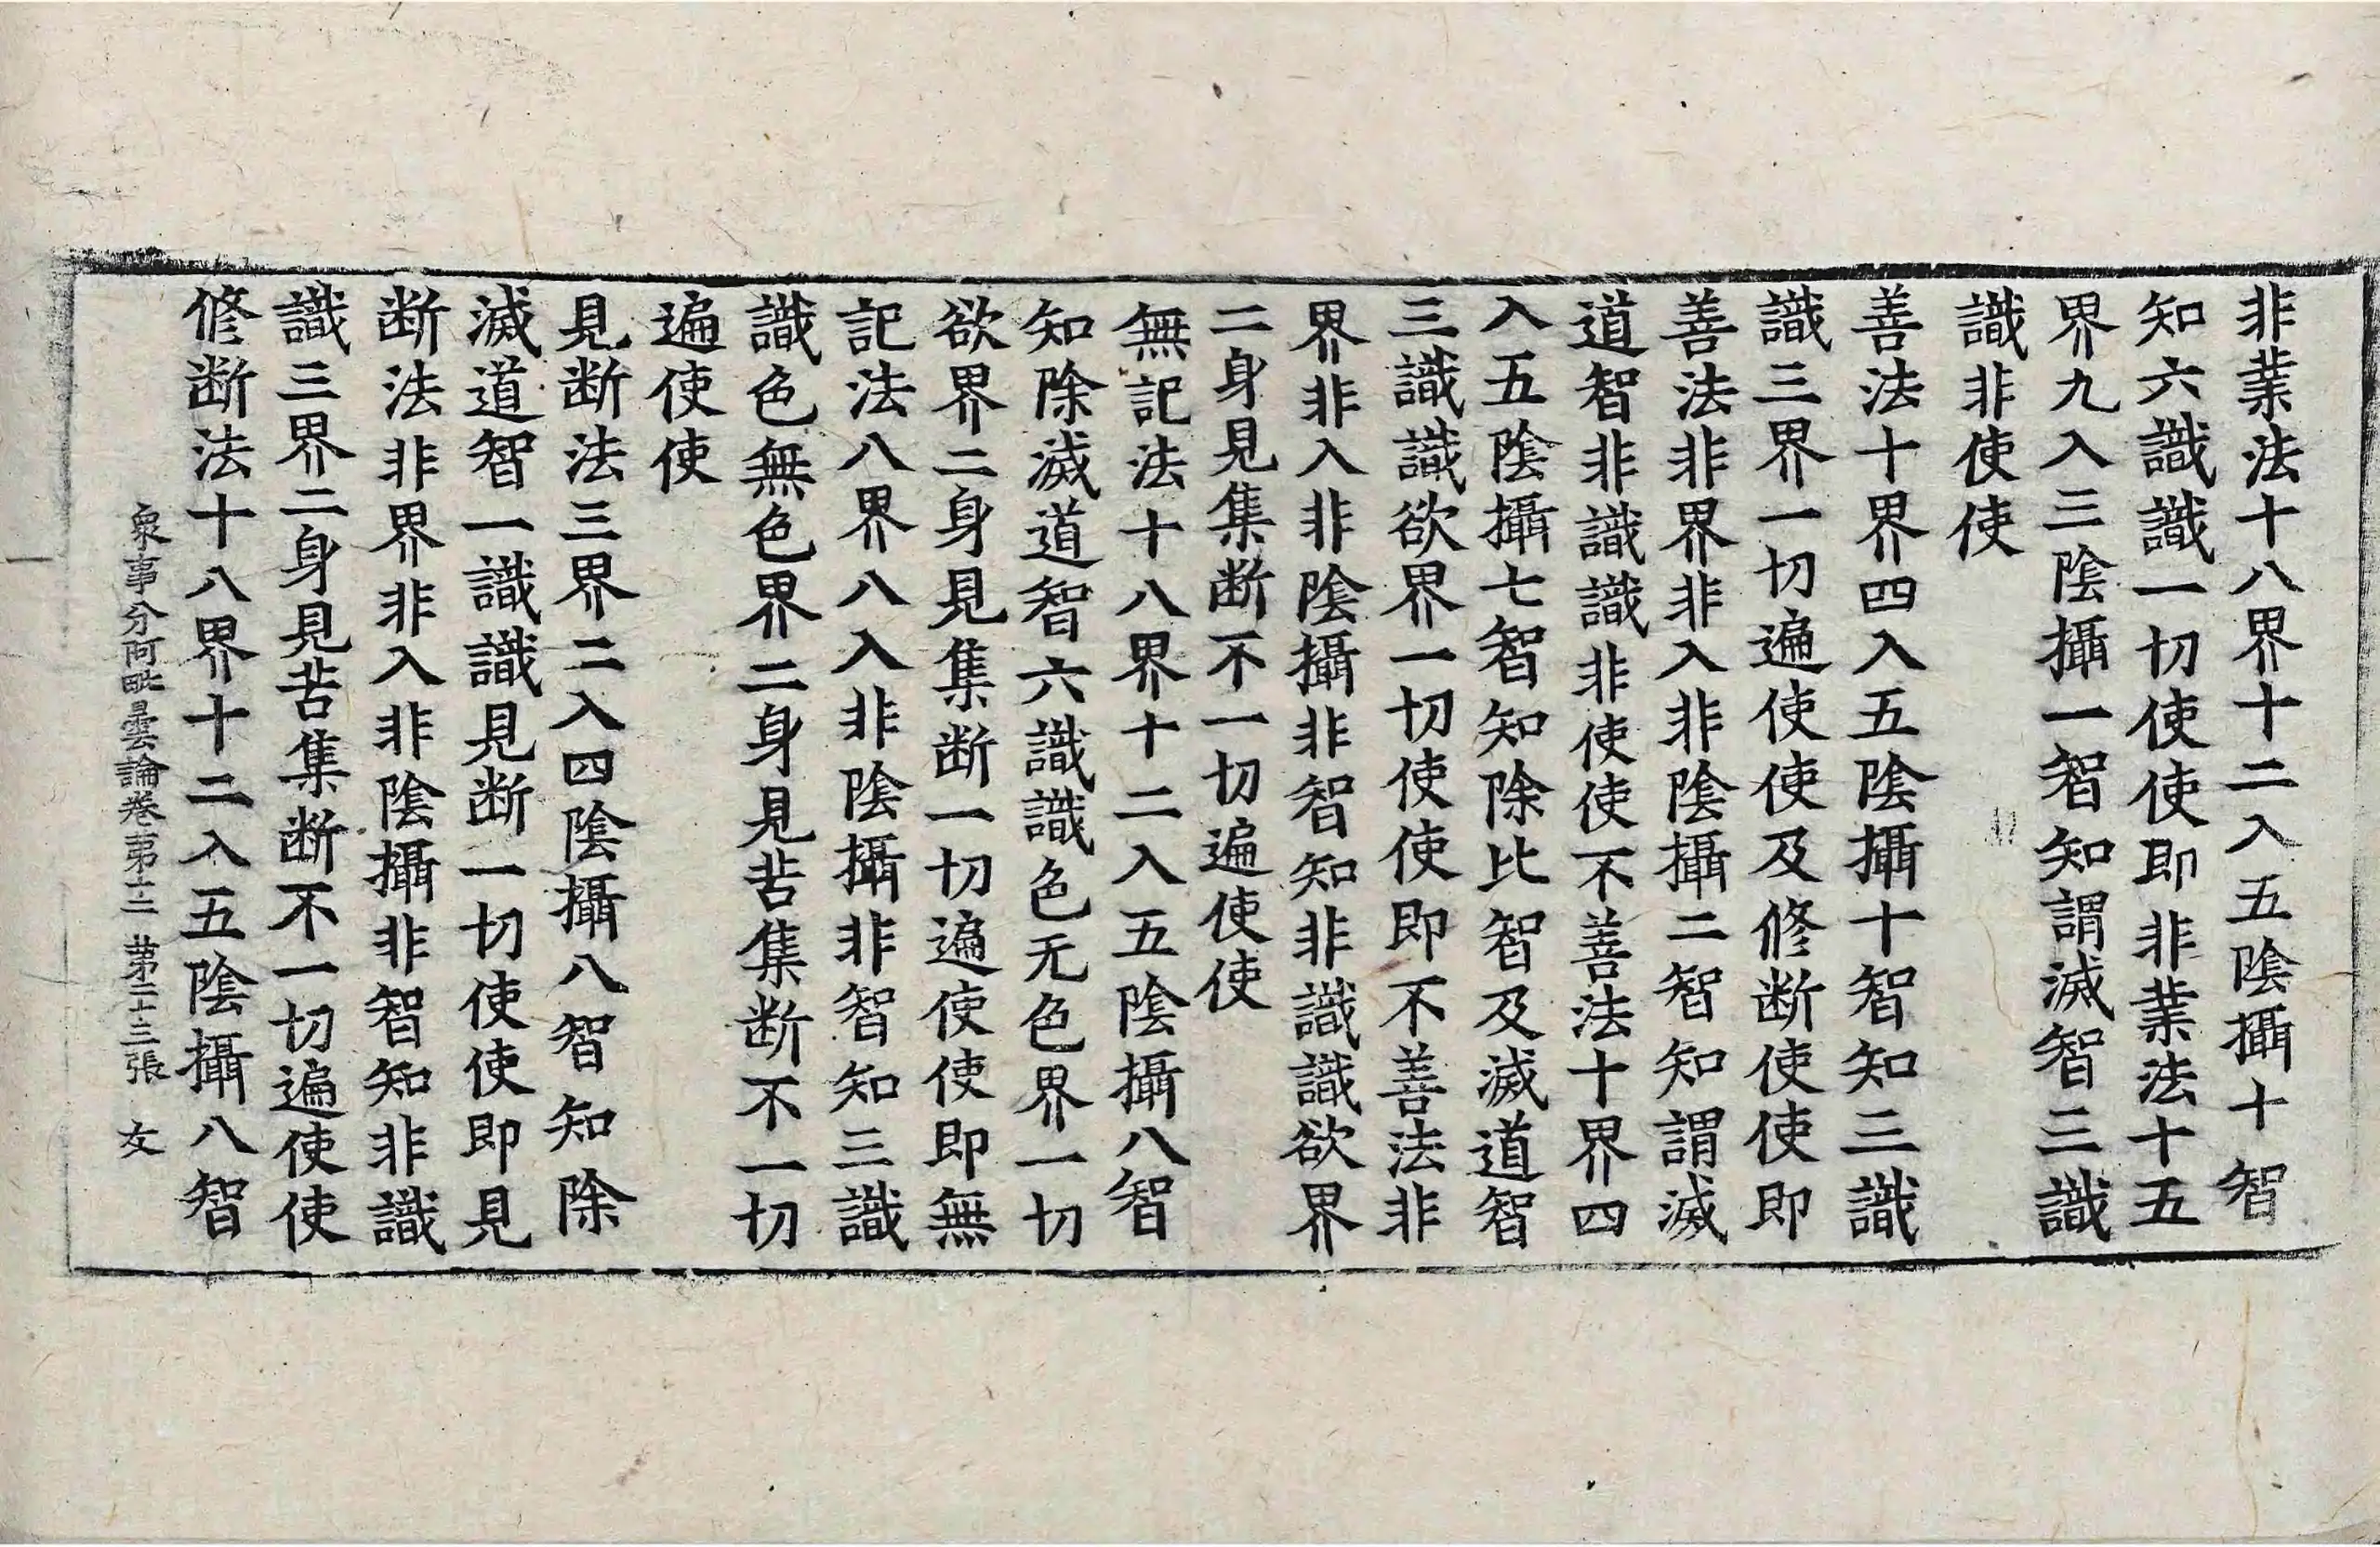 非業法十八界十二入五陰攝十智
知六識識一切使使即非業法十五
界九入三陰攝一智知謂滅智三識
識非使使
善法十界四入五陰攝十智知三識
識三界一切遍使使及修断使使即
善法非界非入非陰攝二智知謂滅
道智非識識非使使不善法十界四
入五陰攝七智知除比智及滅道智
三識識欲界一切使使即不善法非
界非入非陰攝非智知非識識欲界
二身見集断不一切遍使使
無記法十八界十二入五陰攝八智
知除滅道智六識識色无色界一切
欲界二身見集断一切遍使使即無
記法八界八入非陰攝非智知三識
識色無色界二身見苦集断不一切
遍使使
見断法三界二入四陰攝八智知除
滅道智一識識見断一切使使即見
断法非界非入非陰攝非智知非識
識三界二身見苦集断不一切遍使使
修断法十八界十二入五陰攝八智
衆事分阿毗曇論卷苐十二 苐二十三張 友